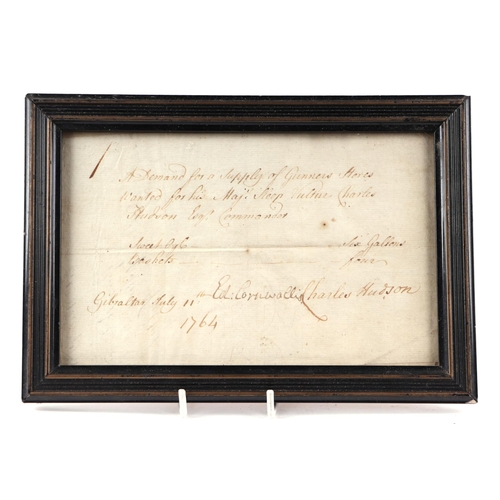 A Demand for a Supply of Gunners Stores
Wanted for his Maj:s Sloop Vulture Charles
Hudson Esq:r Commander
Sweet Oyle Six Gallons
four
Gibraltar July 11th Ed: Cornwallis Charles Hudson
1764